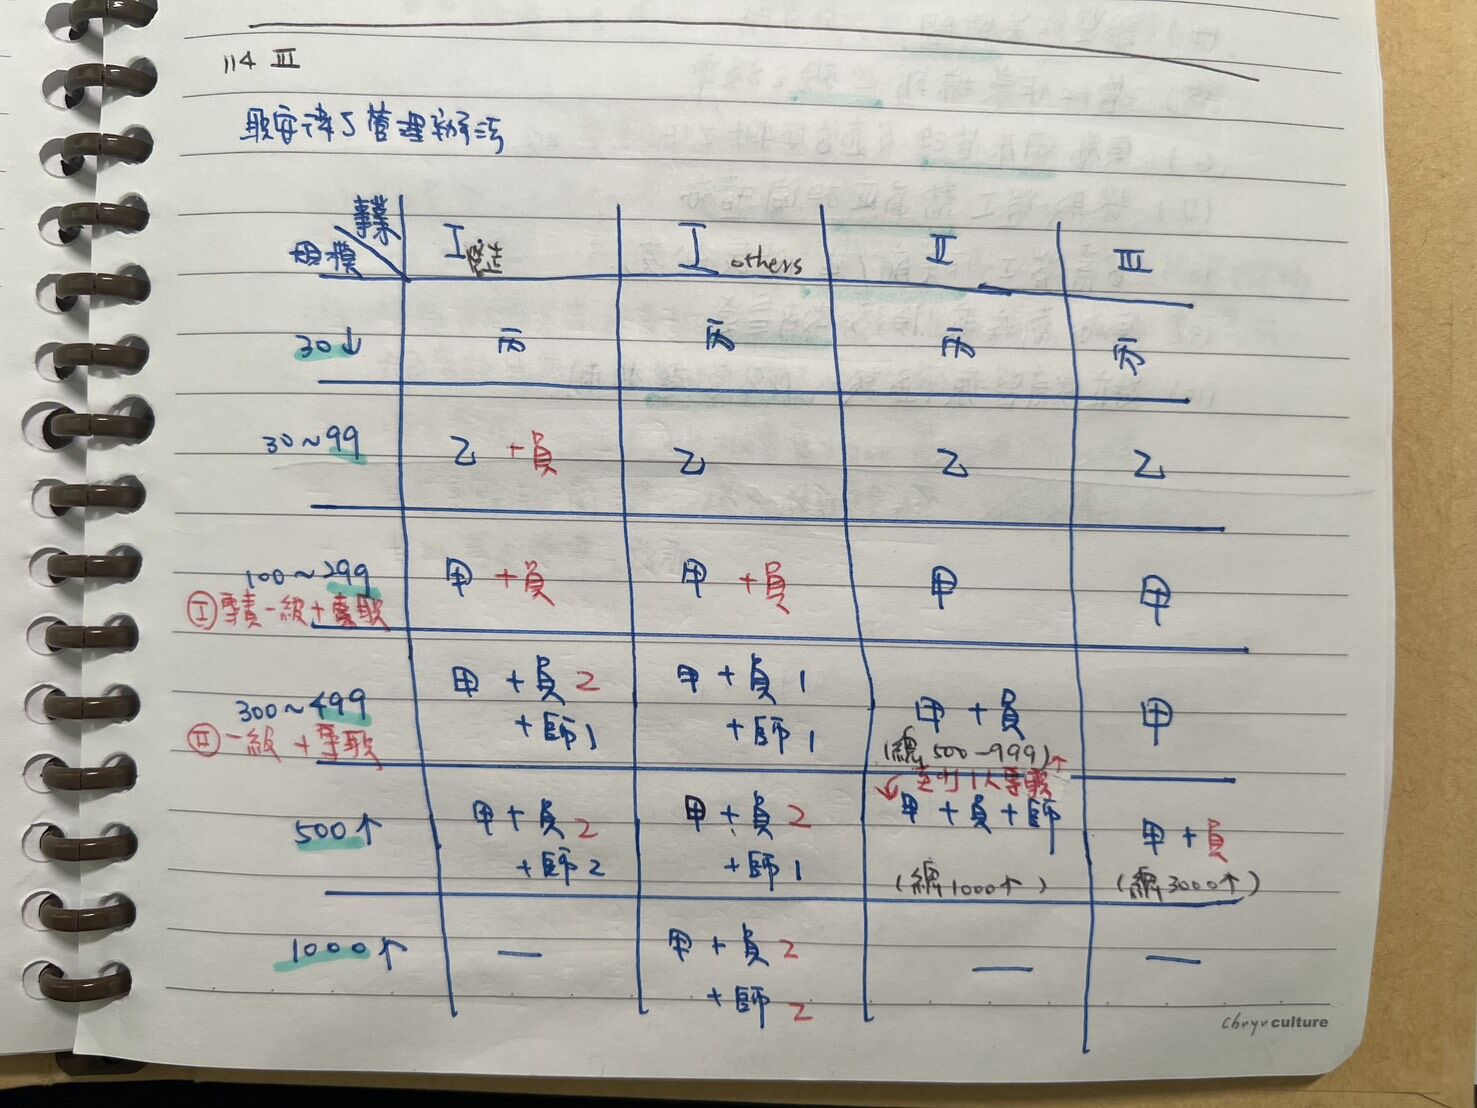 114 III
職安衛管理辦法
事業 I 營造 I others II III
規模
30↓ 丙 丙 丙 丙
30~99 乙 +員 乙 乙 乙
100~299 甲 +員 甲 +員 甲 甲
Ⓘ專責一級+專職
300~499 甲 +員2 甲 +員1 甲 +員 甲
+師1 +師1 (總500-999)↑
Ⅱ 一級 +專職
至少1人專職
500↑ 甲+員2 甲+員2 甲+員+師 甲+員
+師2 +師1 (總1000↑) (總3000↑)
1000↑ — 甲+員2 — —
+師2
culture